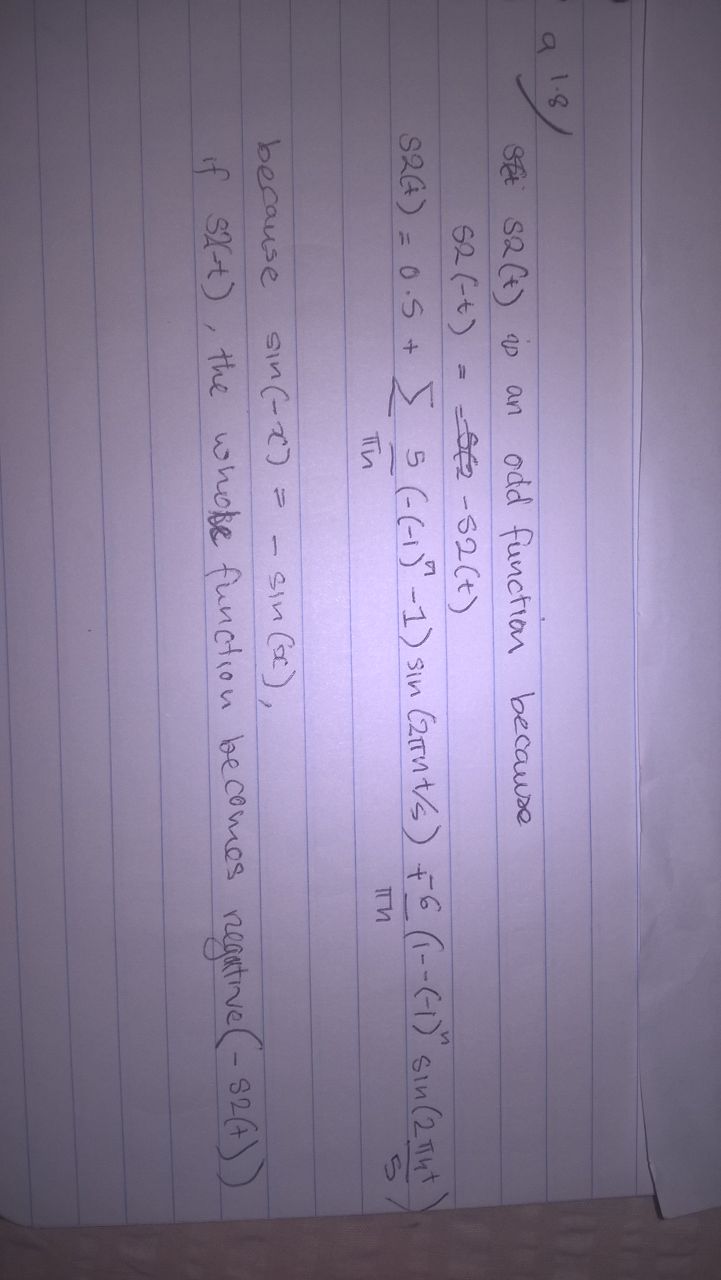 q 1.8)
S2(t) is an odd function because
S2(-t) = -S2(t)
S2(t) = 0.5 + ∑ 5/πn (-(-1)ⁿ - 1) sin(2πnt/5) + -6/πn (1--(-1)ⁿ sin(2πnt/5)
because sin(-x) = - sin(x),
if S2(-t), the whole function becomes negative (- S2(t))